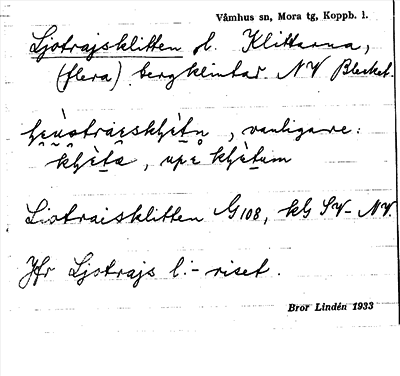 Våmhus sn, Mora tg, Koppb. l.
Ljotrajsklitten pl. Klittarna,
(flera) bergklintar NV Blecket.
vanligare:
Liotraisklitten G108, kG SV-NV.
Jfr Ljotrajs l:- riset.
Bror Lindén 1933